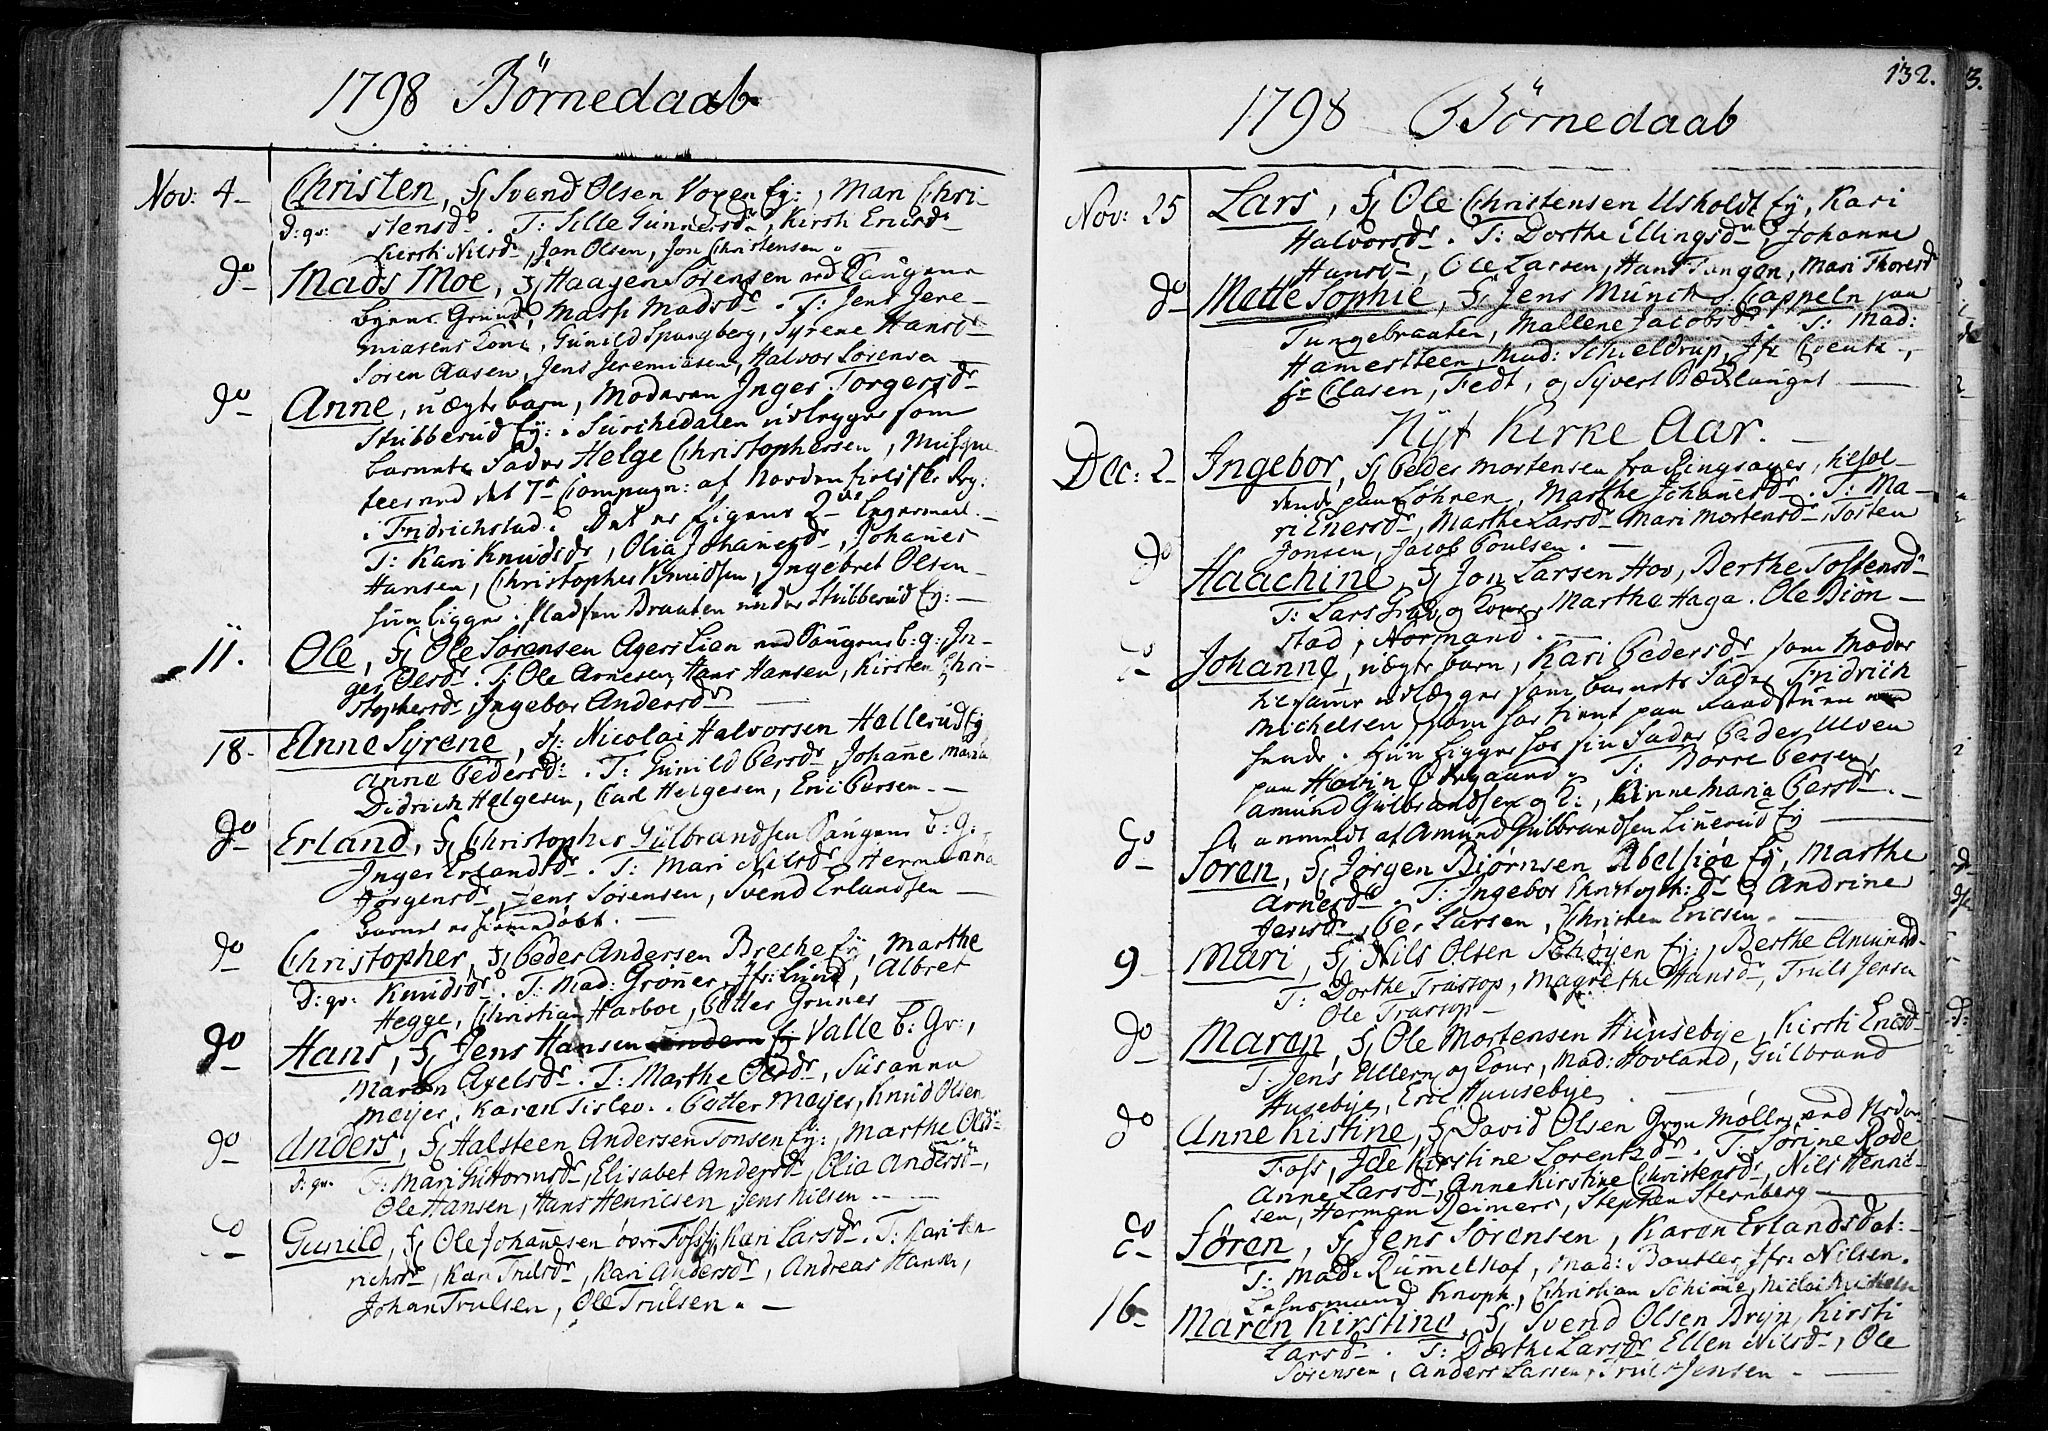 1798 Börnedaab
Nov: 4 Christen, F Svend Olsen Voxen Ej:, Mari Chri-
D: qv: stensdr. T: Sille Gunnersdr, Kirsti Ericsdr
Kersti Nilsdr, Jan Olsen, Jon Christensen.
do Mads Moe, F Haagen Sørensen ved Saugene
Byens Grund, Mads Madsdr. T: Jens Jere-
miasens Kone, Gunild Spangberg, Syrene Hansdr
Søren Aasen, Jens Jeremiasen, Halvor Sørensen
do Anne, uægte barn, Moderen Inger Torgersdr
Stubberud Ej:. Surchedalen udlegger som
barnets Fader Helge Christophersen, Musque-
teer ved det 7de Compagn: af Nordenfieldske Reg:
i Fridrichstad. Det er Pigens 2de Legermaal.
T: Kari Knudsdr, Olia Johanesdr, Johanes
Hansen, Christopher Knudsen, Ingebret Olsen
hun ligger i Pladsen Braaten under Stubberud Ej:
11. Ole, F Ole Sørensen Agers Lien ved Saugene b: g:, In-
ger Olsdr. T: Ole Arnesen, Hans Hansen, Kirsten Chri-
stophersdr, Ingebor Andersdr
18 Anne Syrene, F: Nicolai Halvorsen Hallerud Ej
Anne Pedersdr. T: Gunild Persdr, Johanne Maria
Didrich Helgesen, Carl Helgesen, Eric Persen.
do Erland, F Christopher Gulbrandsen Saugene b: g:
Inger Erlandsdr. T: Mari Nilsdr, Hermanna
Jørgensdr, Jens Sørensen, Svend Erlandsen
Barnet er hjemmedøbt.
do Christopher, F Peder Andersen Breche Ej, Marthe
D: qv: Knudsdr. T: Mad: Grøner, Jfr: Lund, Albret
Hegge, Christian Harboe, Petter Gruner
do Hans, F Jens Hansen Valle b: Gr:,
Maren Axelsdr. T: Marthe Olsdr, Susanna
Meyer, Karen Tislev. Petter Meyer, Knud Olsen
do Anders, F Halsteen Andersen Tonsen Ej:, Marthe Olsdr
D: qv. T: Mari Guttormsdr, Elisabet Andersdr, Olia Andersdr,
Ole Hansen, Hans Henricsen, Jens Nilsen
do Gunild, F Ole Johannesen over Foss, Kari Larsdr. T: Kari Hen-
richsdr, Kari Trulsdr, Kari Andersdr, Andreas Hansen,
Johan Trulsen, Ole Trulsen.
132.
1798 Börnedaab
Nov: 25 Lars, F Ole Christensen Usholdt Ej, Kari
Halvorsdr. T: Dorthe Ellingsdr, Johanne
Hansdr, Ole Larsen, Hans Tangen, Mari Thoresdr
do Mette Sophie, F Jens Munch s. Cappeln paa
Tungebraaten, Mallene Jacobsdr. T: Mad:
Hamersteen, Mad: Schieldrup, Jfr Coentz,
Hr Clasen, Fedt, og Syvert Bedslanget
Nyt Kirke Aar.
Dec: 2 Ingebor, F Peder Mortensen fra Ringsager, tilhol-
dende paa Løhren, Marthe Johanesdr. T: Ma-
ri Enersdr, Marthe Larsdr, Mari Mortensdr, Tosten
Jonsen, Jacob Poulsen.
do Haachine, F Jon Larsen Hov, Berthe Tostensdr
T: Lars Frøl og Kone, Marthe Haga. Ole Biøn-
stad, Normand.
do Johanne, uægte barn, Kari Pedersdr som Moder
til samme udlægger som barnets Fader Fridrich
Michelsen, som har tient paa Raadstuen
hun ligger hos sin Fader Peder Ulven
paa Hovin Ødegaard. T: Børre Persen,
Amund Gulbrandsen og K:, Anne Maria Persdr.
anmeldt af Amund Gulbrandsen Linerud Ej
do Søren, F Jørgen Biørnsen Abelsiøe Ej, Marthe
Arnesdr. T: Ingebor Christoph: dr, Andrine
Jensdr, Per Larsen, Christen Ericsen.
9 Mari, F Nils Olsen Schøyen Ej:, Berthe Amundsdr
T: Dorthe Trosrop, Magrethe Hansdr, Truls Jensen
Ole Trosrop
do Maren, F Ole Mortensen Huusebye, Kirsti Ericsdr
T: Jens Ullern og Kone, Mad: Hovland, Gulbrand
Husebye, Eric Huusebye
do Anne Kistine, F David Olsen Gryn Møller ved Nedre
Foss, Ide Kirstine Lorentzdr. T: Sørine Rode
Anne Larsdr, Anne Kirstine Christensdr, Nils Henric-
sen, Herman Reimers, Stephan Sternberg
do Søren, F Jens Sørensen, Karen Erlandsdat:
T: Mad: Rummelhof, Mad: Boutler, Jfr: Nilsen.
Knoph, Christian Schiøtte, Niclai
16 Maren Kirstine, F Svend Olsen Bryn, Kirsti
Larsdr. T: Dorthe Larsdr, Ellen Nilsdr, Ole
Sørensen, Anders Larsen, Truls Jensen.